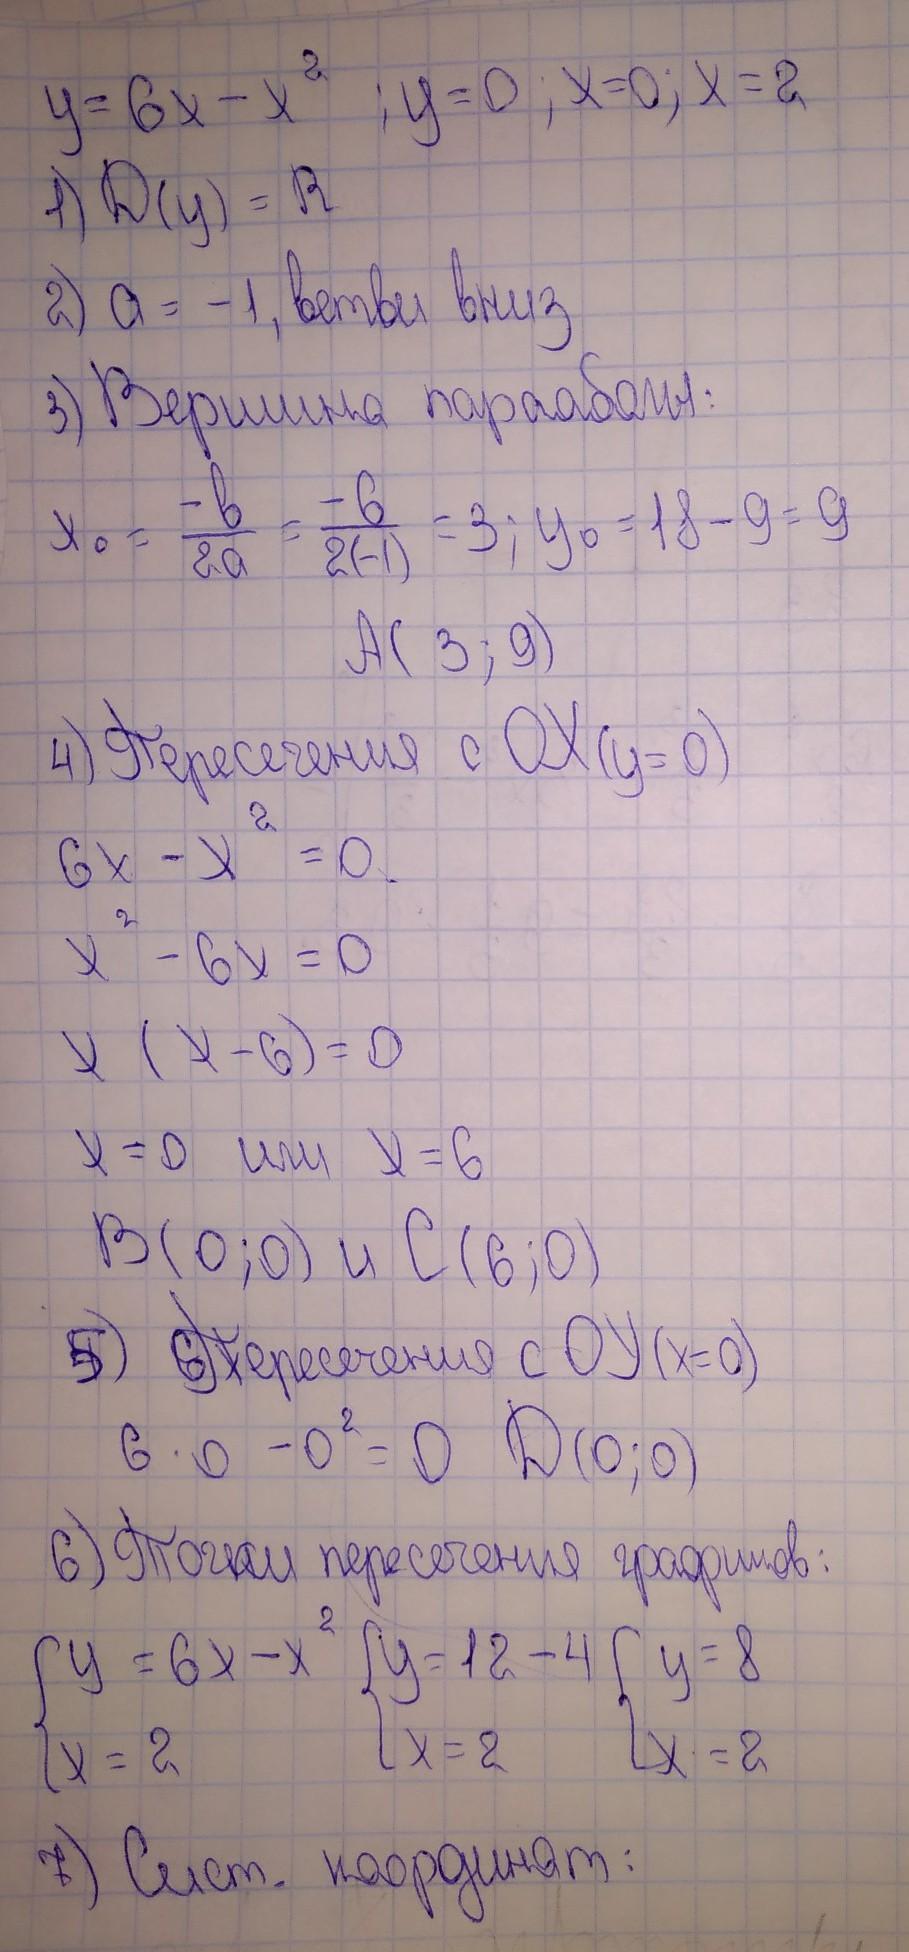 y = 6x - x² ; y = 0 ; x = 0; x = 2
1) D(y) = R
2) a = -1, ветви вниз
3) Вершина парааболы:
x₀ = -b/2a = -6/2(-1) = 3; y₀ = 18 - 9 = 9
A( 3 ; 9)
4) Пересечения с OX (y = 0)
6x - x² = 0.
x² - 6x = 0
x (x - 6) = 0
x = 0 или x = 6
B(0;0) и C(6;0)
5) Пересечения с OY (x=0)
6 · 0 - 0² = 0 D(0;0)
6) Точки пересечения графиков:
{ y = 6x - x² { y = 12 - 4 { y = 8
x = 2 x = 2 x = 2
7) Сист. координат: